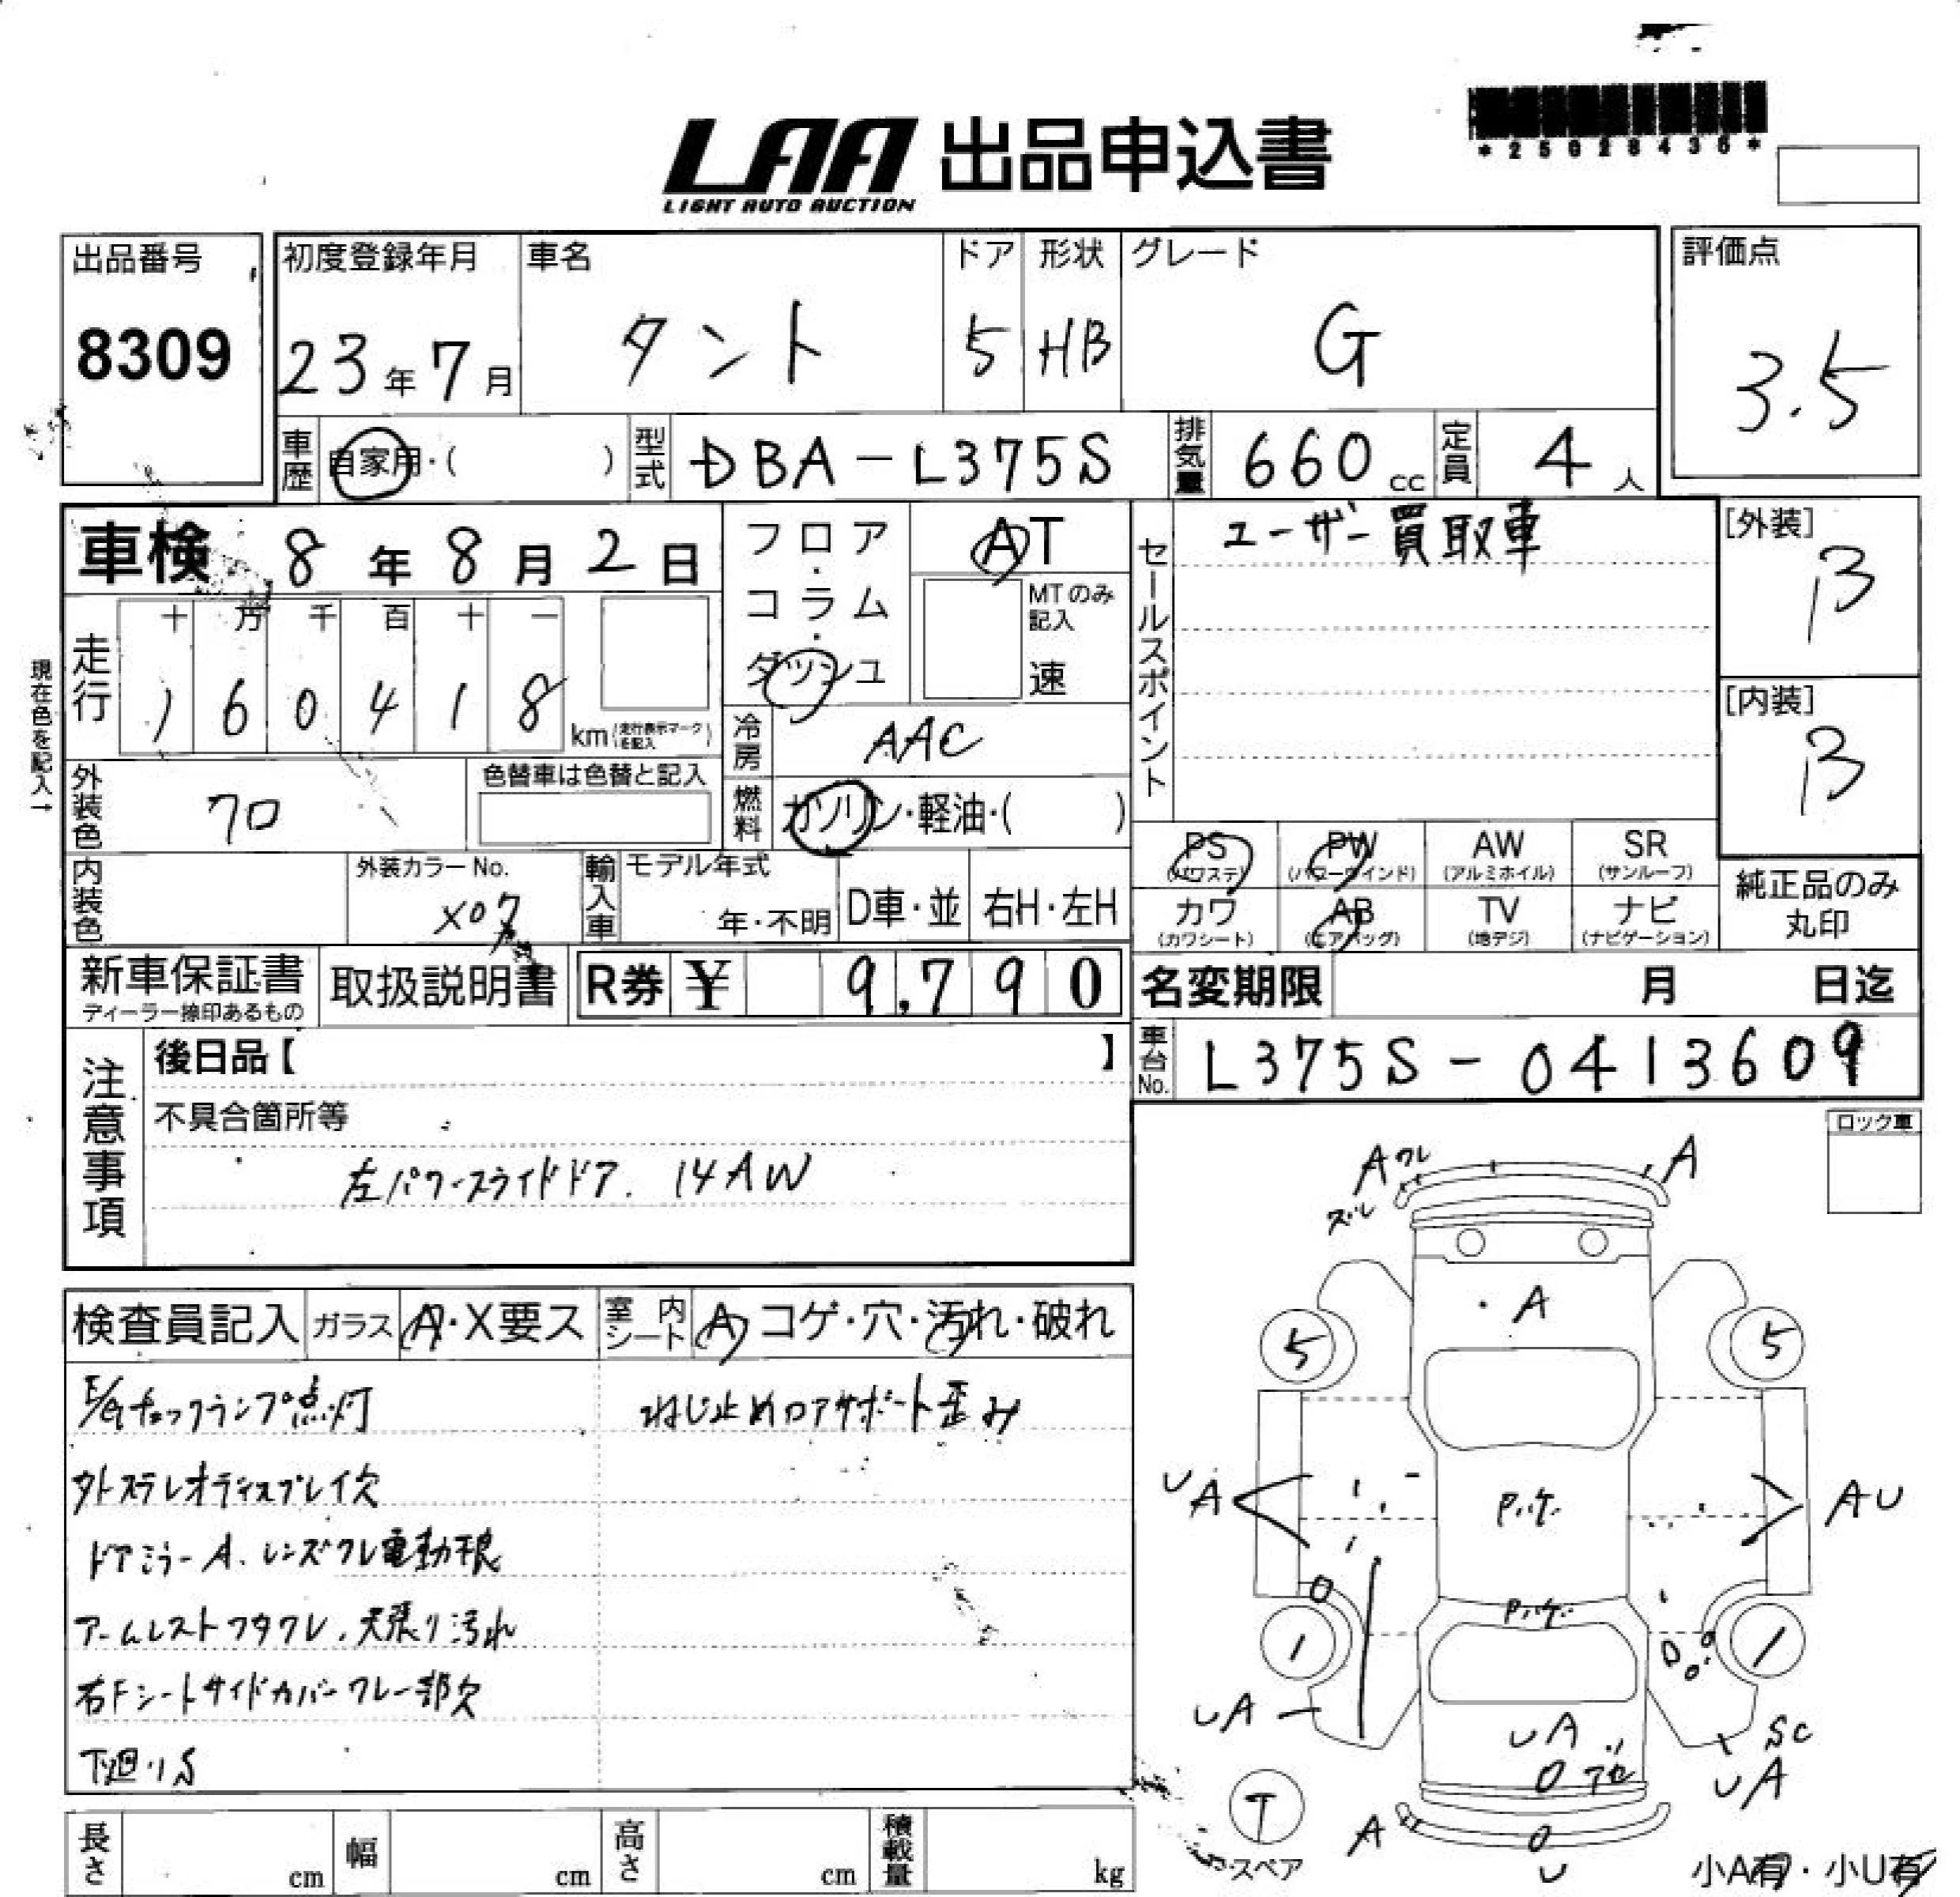 *25028436*
LAA 出品申込書
LIGHT AUTO AUCTION
出品番号
8309
初度登録年月
23年7月
車名
タント
ドア
5
形状
HB
グレード
G
評価点
3.5
車歴 自家用・( )
型式 DBA-L375S
排気量 660cc
定員 4人
車検 8年8月2日
フロア・コラム・ダッシュ
AT
MTのみ記入
速
セールスポイント
ユーザー買取車
[外装]
B
[内装]
B
現在色を記入→
走行
十 万 千 百 十 一
1 6 0 4 1 8
km(走行表示マークを記入)
冷房 AAC
燃料 ガソリン・軽油・( )
外装色 クロ
色替車は色替と記入
内装色
外装カラーNo.
X07
輸入車
モデル年式
年・不明
D車・並
右H・左H
PS (パワステ)
PW (パワーウインド)
AW (アルミホイル)
SR (サンルーフ)
カワ (カワシート)
AB (エアバッグ)
TV (地デジ)
ナビ (ナビゲーション)
純正品のみ丸印
新車保証書
ディーラー捺印あるもの
取扱説明書
R券 ¥ 9,790
名変期限 月 日迄
車台No. L375S-0413609
注意事項
後日品【 】
不具合箇所等
左パワースライドドア. 14AW
ロック車
検査員記入
ガラス A・X要ス
室内シート A コゲ・穴・汚れ・破れ
E/Gチェックランプ点灯
ねじ止めロアサポート歪み
外ステレオディスプレイ欠
ドアミラーA、レンズワレ電動不良
アームレストフタワレ、天張り汚れ
右Fシートサイドカバーワレ一部欠
下廻りS
A ワレ
A
ズレ
A
5
5
UA
P.ケ.
AU
P.ケ.
1
1
UA
UA
SC
UA
T
A
U
スペア
小A有・小U有
長さ cm
幅 cm
高さ cm
積載量 kg